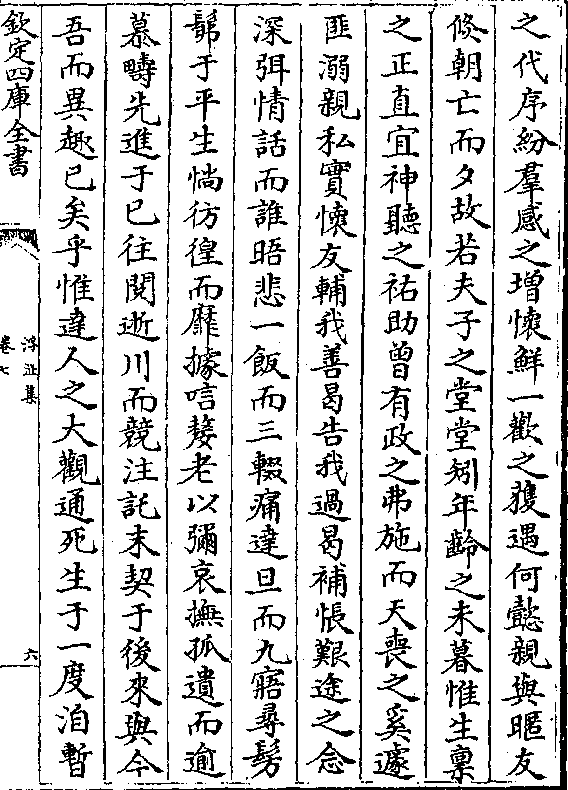 之代序紛羣感之增懷鮮一歡之獲遇何懿親與暱友
倐朝亡而夕故若夫子之堂堂矧年齡之未暮惟生稟
之正直宜神聽之祐助曾有政之弗施而天喪之奚遽
匪溺親私實懷友輔我善曷告我過曷補悵艱途之念
深弭情話而誰晤悲一飯而三輟痛達旦而九寤尋髣
髴于平生惝彷徨而靡據唁嫠老以彌哀撫孤遺而逾
慕疇先進于已往閱逝川而競注託末契于後來與今
吾而異趣已矣乎惟達人之大觀通死生于一度洎暫
欽定四庫全書
浮沚集
卷七
六